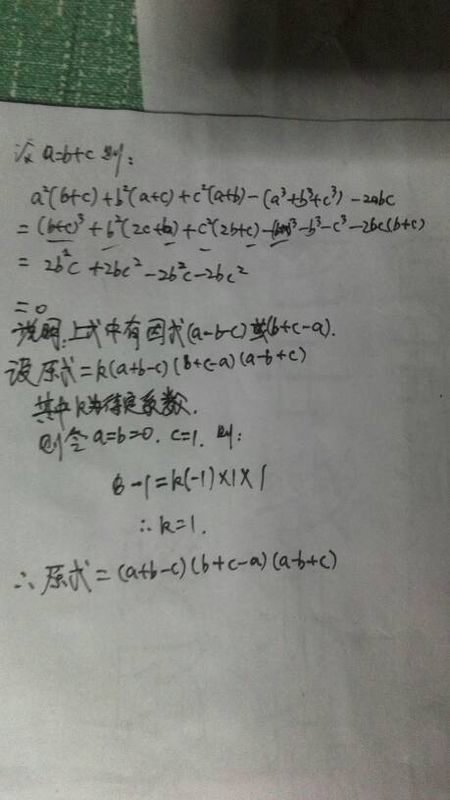 设 a=b+c 则:
a²(b+c)+b²(a+c)+c²(a+b)-(a³+b³+c³)-2abc
=(b+c)³+b²(2c+b)+c²(2b+c)-(b+c)³-b³-c³-2bc(b+c)
=2b²c+2bc²-2b²c-2bc²
=0
说明:上式中有因式(a-b-c)或(b+c-a).
设原式=k(a+b-c)(b+c-a)(a-b+c)
其中k为待定系数.
则令a=b=0. c=1. 则:
-1=k(-1)×1×1
∴k=1.
∴原式=(a+b-c)(b+c-a)(a-b+c)